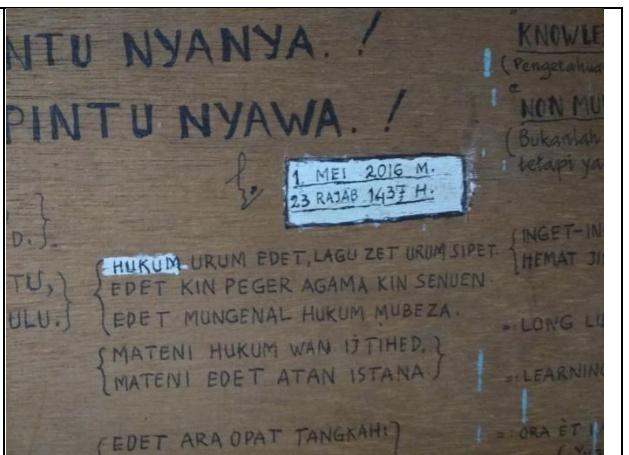 NTU NYANYA. !
PINTU NYAWA. !
1 MEI 2016 M.
23 RAJAB 1437 H.
D.
TU,
ULU.
HUKUM URUM EDET, LAGU ZET URUM SIPET.
EDET KIN PEGER AGAMA KIN SENUEN.
EDET MUNGENAL HUKUM MUBEZA.
MATENI HUKUM WAN IJTIHED.
MATENI EDET ATAN ISTANA.
EDET ARA OPAT TANGKAH:
KNOWLE
(Pengetahua
NON MU
(Bukanlah
tetapi ya
INGET-IN
HEMAT JI
=: LONG LI
=: LEARNING
=: ORA ÈT